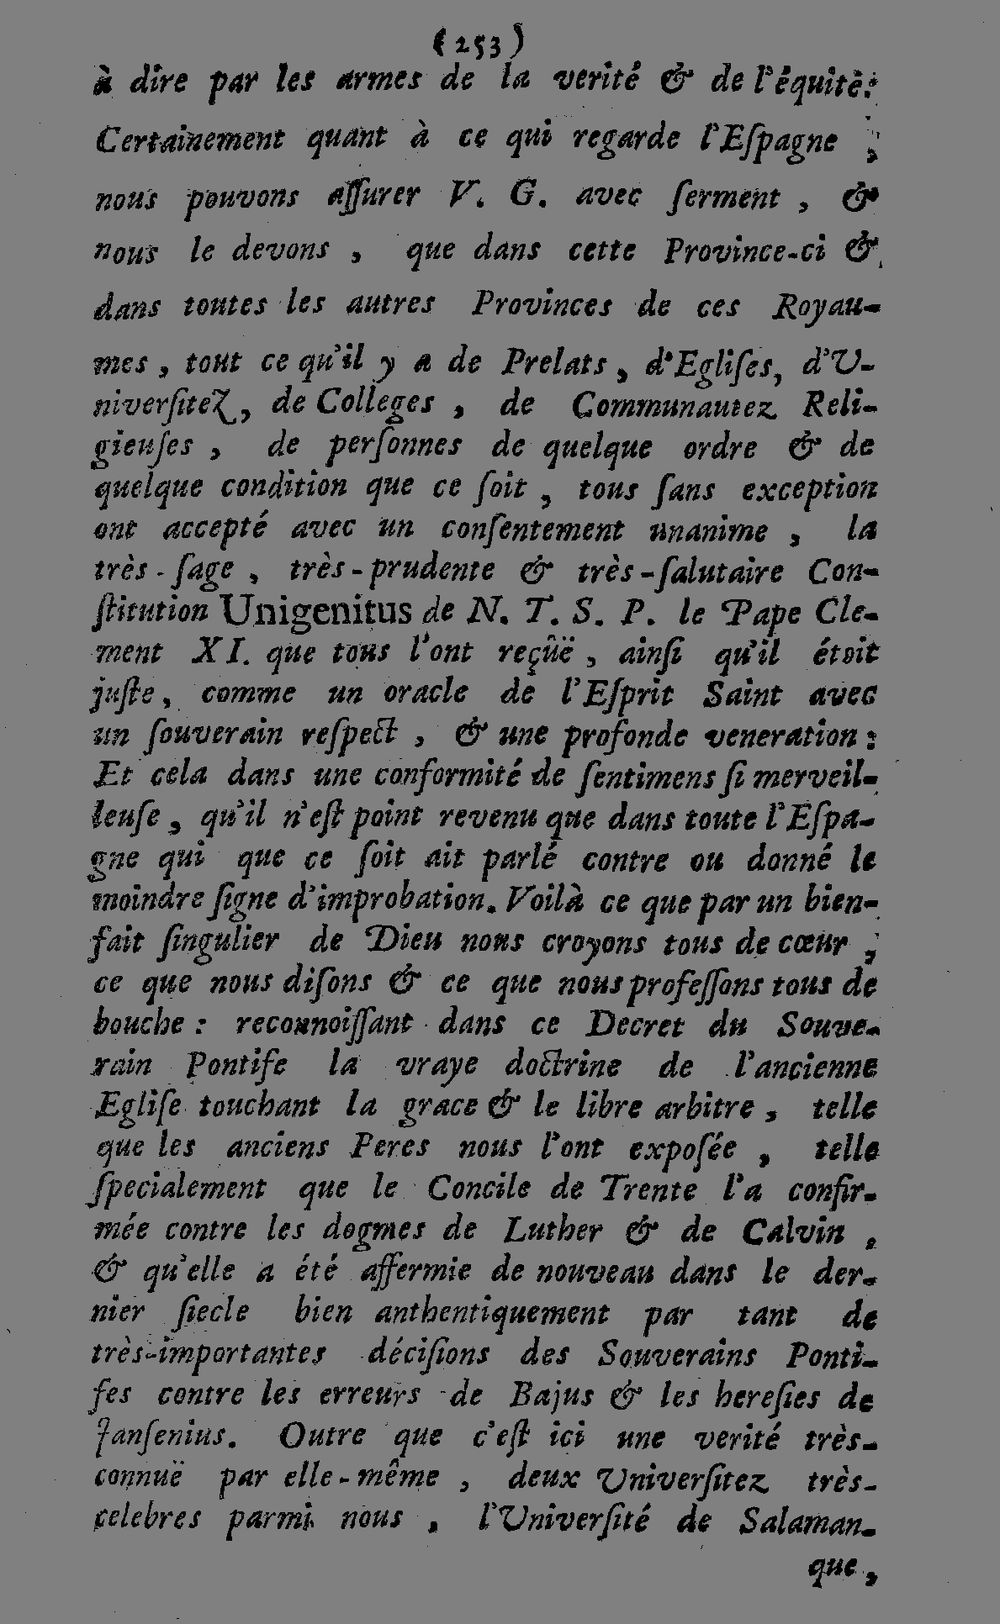 (253)
à dire par les armes de la verité & de l'équité.
Certainement quant à ce qui regarde l'Eſpagne ,
nous pouvons aſſurer V. G. avec ſerment , &
nous le devons , que dans cette Province-ci &
dans toutes les autres Provinces de ces Royau-
mes , tout ce qu'il y a de Prelats , d'Egliſes, d'U-
niverſitez, de Colleges , de Communautez Reli-
gieuſes , de perſonnes de quelque ordre & de
quelque condition que ce ſoit , tous ſans exception
ont accepté avec un conſentement unanime , la
très-ſage , très-prudente & très-ſalutaire Con-
ſtitution Unigenitus de N. T. S. P. le Pape Cle-
ment XI. que tous l'ont reçûë , ainſi qu'il étoit
juſte , comme un oracle de l'Eſprit Saint avec
un ſouverain reſpect , & une profonde veneration :
Et cela dans une conformité de ſentimens ſi merveil-
leuſe , qu'il n'eſt point revenu que dans toute l'Eſpa-
gne qui que ce ſoit ait parlé contre ou donné le
moindre ſigne d'improbation. Voilà ce que par un bien-
fait ſingulier de Dieu nous croyons tous de cœur ,
ce que nous diſons & ce que nous profeſſons tous de
bouche : reconnoiſſant dans ce Decret du Souve-
rain Pontife la vraye doctrine de l'ancienne
Egliſe touchant la grace & le libre arbitre , telle
que les anciens Peres nous l'ont expoſée , telle
ſpecialement que le Concile de Trente l'a confir-
mée contre les dogmes de Luther & de Calvin ,
& qu'elle a été affermie de nouveau dans le der-
nier ſiecle bien anthentiquement par tant de
très-importantes déciſions des Souverains Ponti-
fes contre les erreurs de Bajus & les hereſies de
Janſenius. Outre que c'eſt ici une verité très-
connuë par elle-même , deux Univerſitez très-
celebres parmi nous , l'Univerſité de Salaman-
que ,